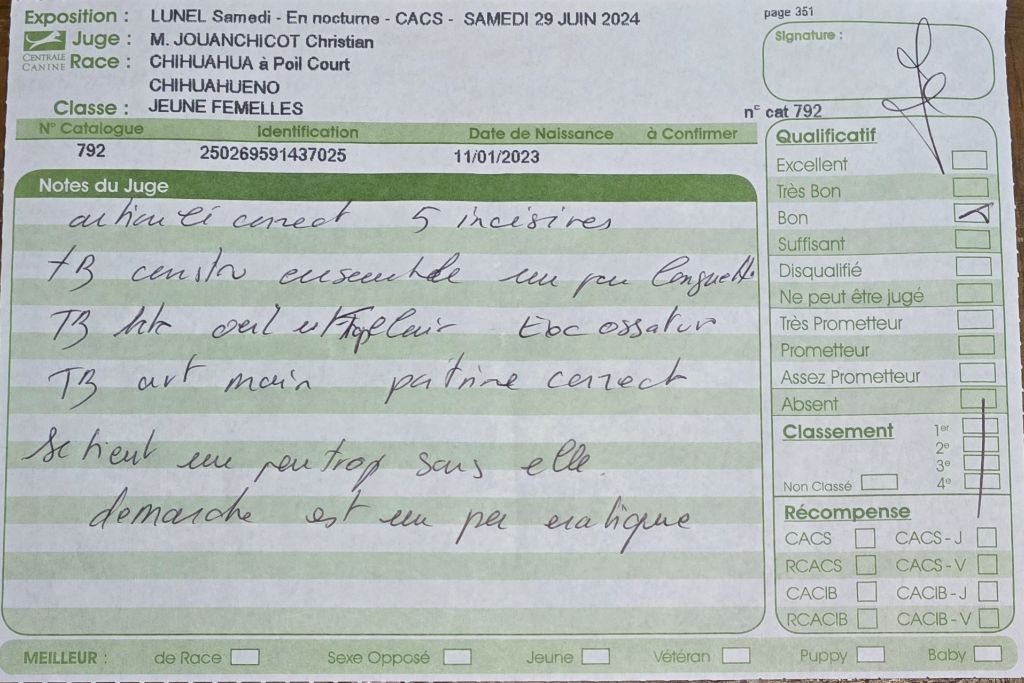 Exposition : LUNEL Samedi - En nocturne - CACS - SAMEDI 29 JUIN 2024
page 351
CENTRALE CANINE
Juge : M. JOUANCHICOT Christian
Signature :
Race : CHIHUAHUA à Poil Court
CHIHUAHUENO
Classe : JEUNE FEMELLES
n° cat 792
N° Catalogue Identification Date de Naissance à Confirmer
792 250269591437025 11/01/2023
Notes du Juge
correct 5 incisives
TB constr ensemble un peu longuett.
TB tete oeil ossatur
TB art main poitrine correct
Se tient un peu trop sous elle.
demarche est un peu eratique
Qualificatif
Excellent
Très Bon
Bon
Suffisant
Disqualifié
Ne peut être jugé
Très Prometteur
Prometteur
Assez Prometteur
Absent
Classement 1er
2e
3e
Non Classé 4e
Récompense
CACS CACS - J
RCACS CACS - V
CACIB CACIB - J
RCACIB CACIB - V
MEILLEUR : de Race Sexe Opposé Jeune Vétéran Puppy Baby